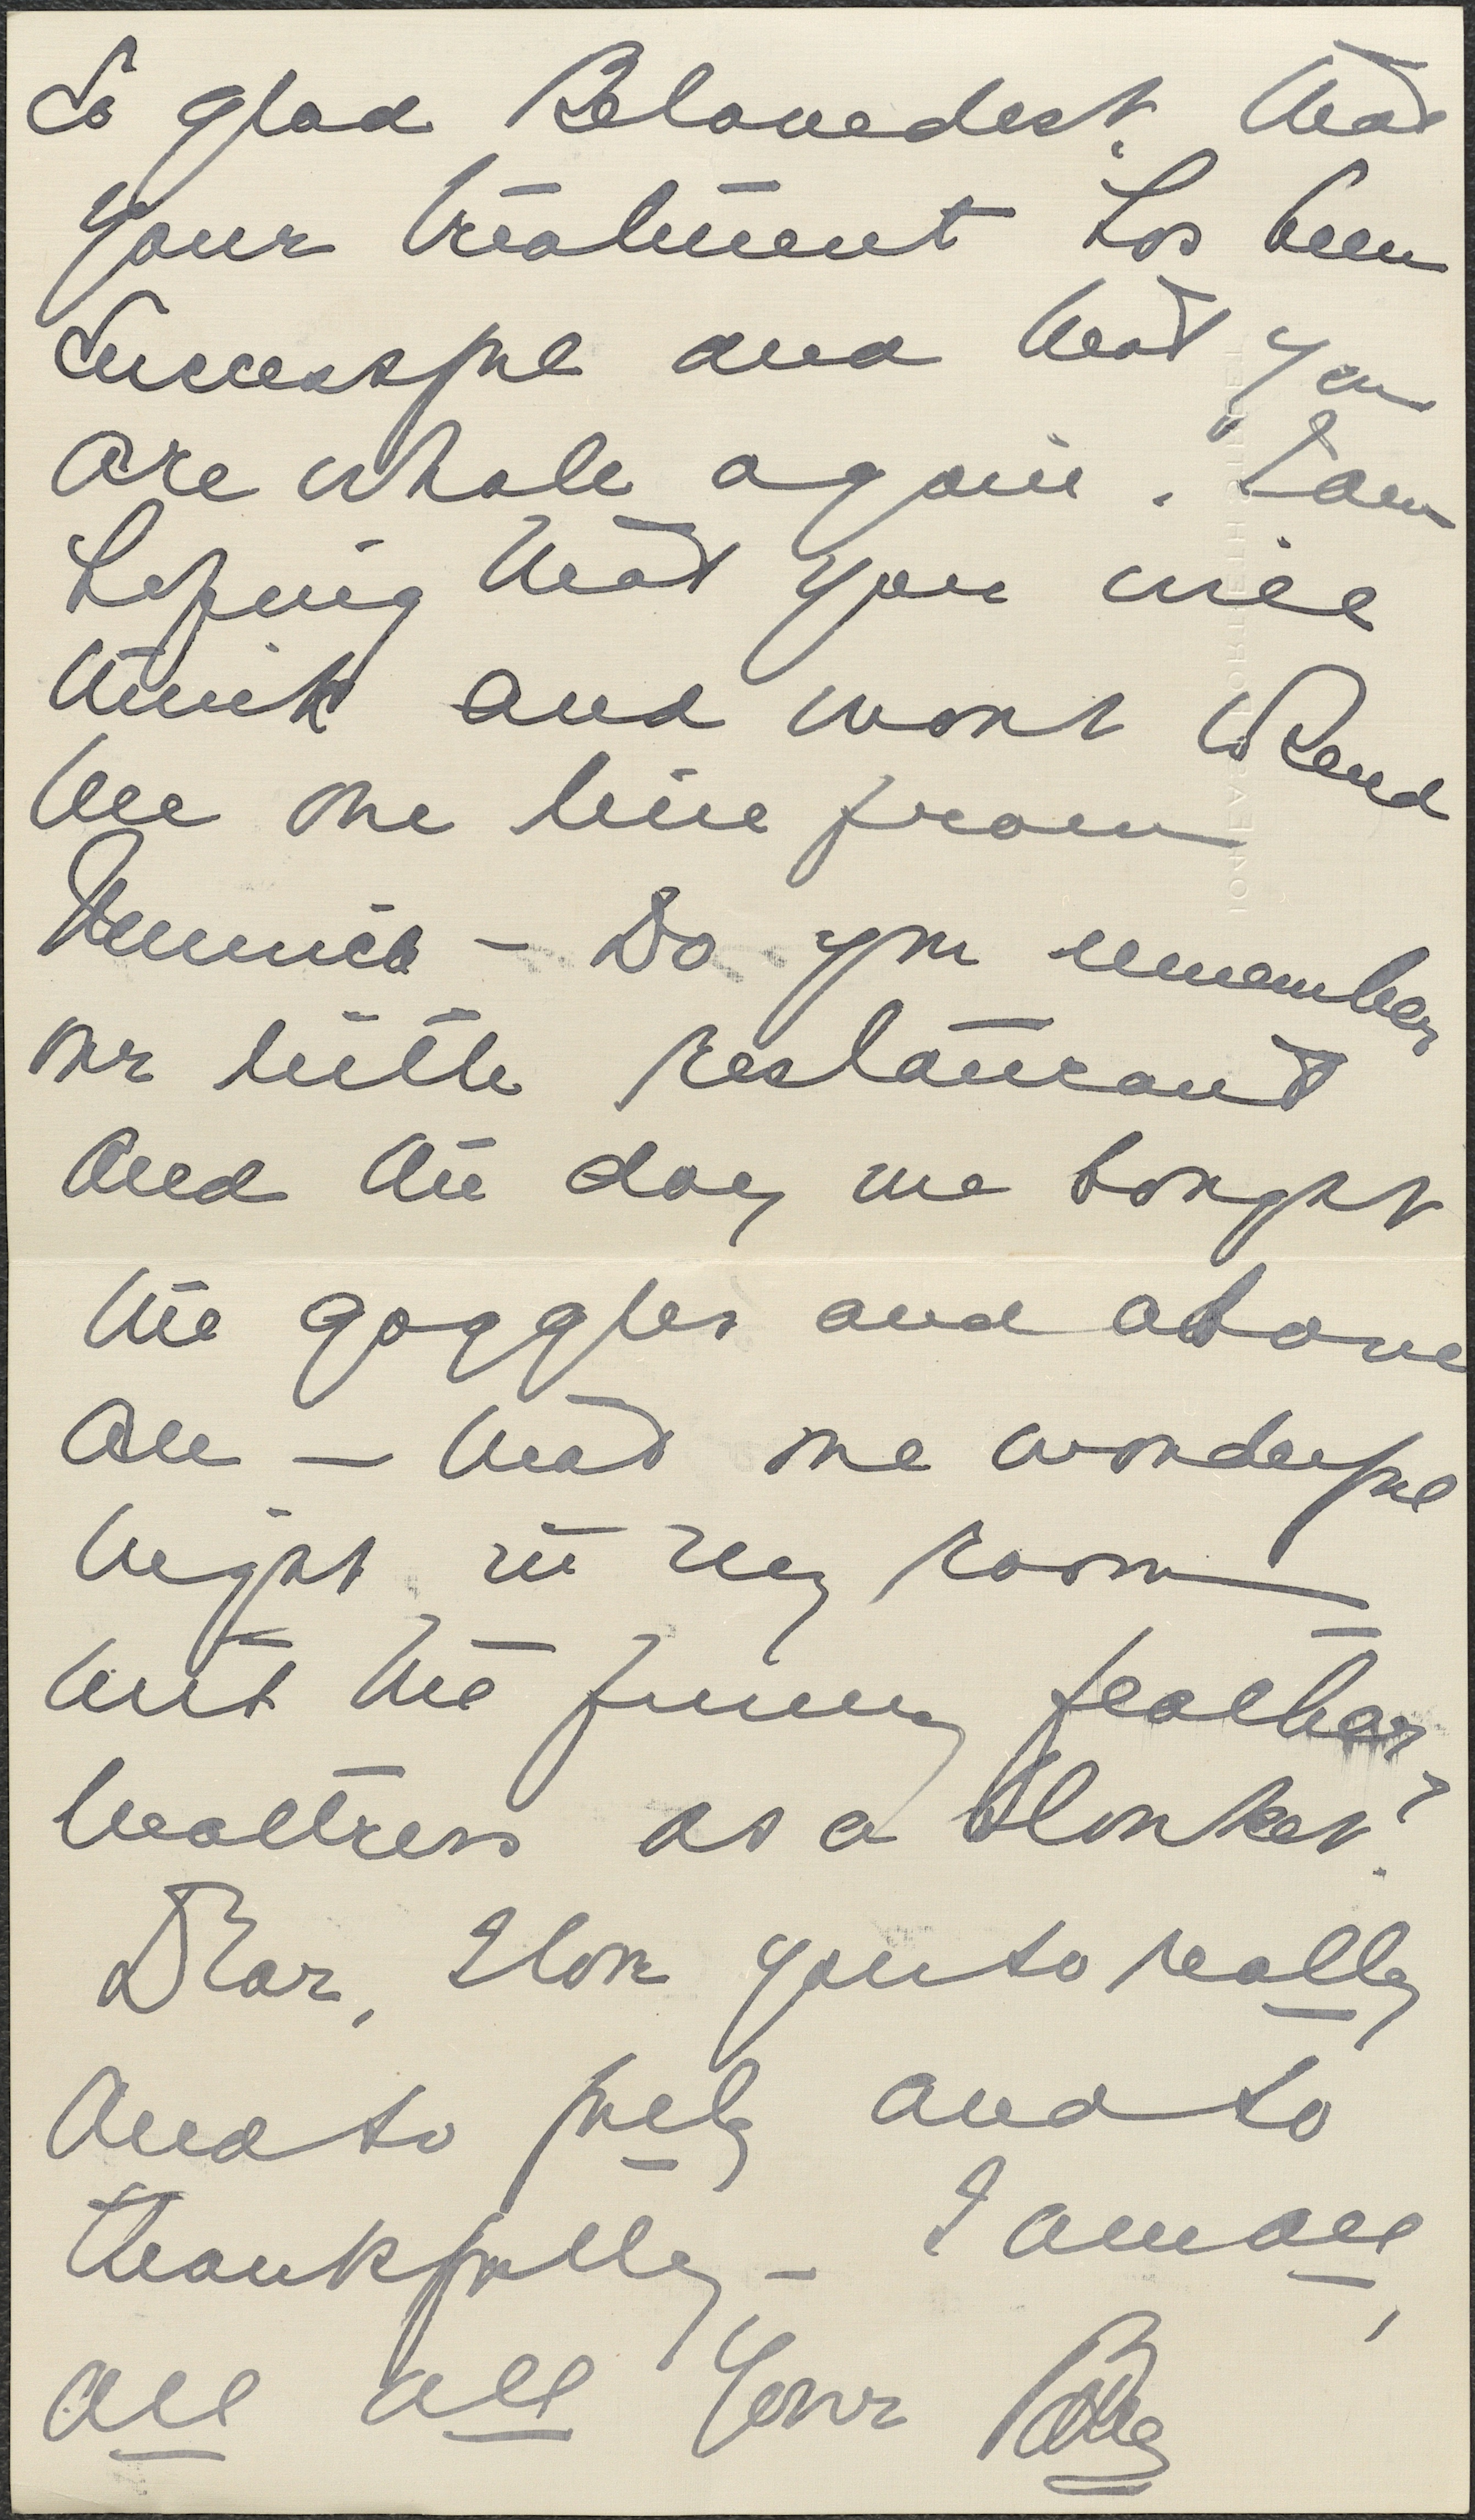 So glad Belovedest, that
your treatment has been
successful and that you
are whole again. I am
hoping that you will
think and want to send
me one line from
Munich - Do you remember
our little restaurant
and the day we bought
the goggles and above
all - that one wonderful
night in my room
with the funny feather
mattress as a blanket?
Dear, I love you so really
and so fully and so
thankfully - I am all,
all all Your